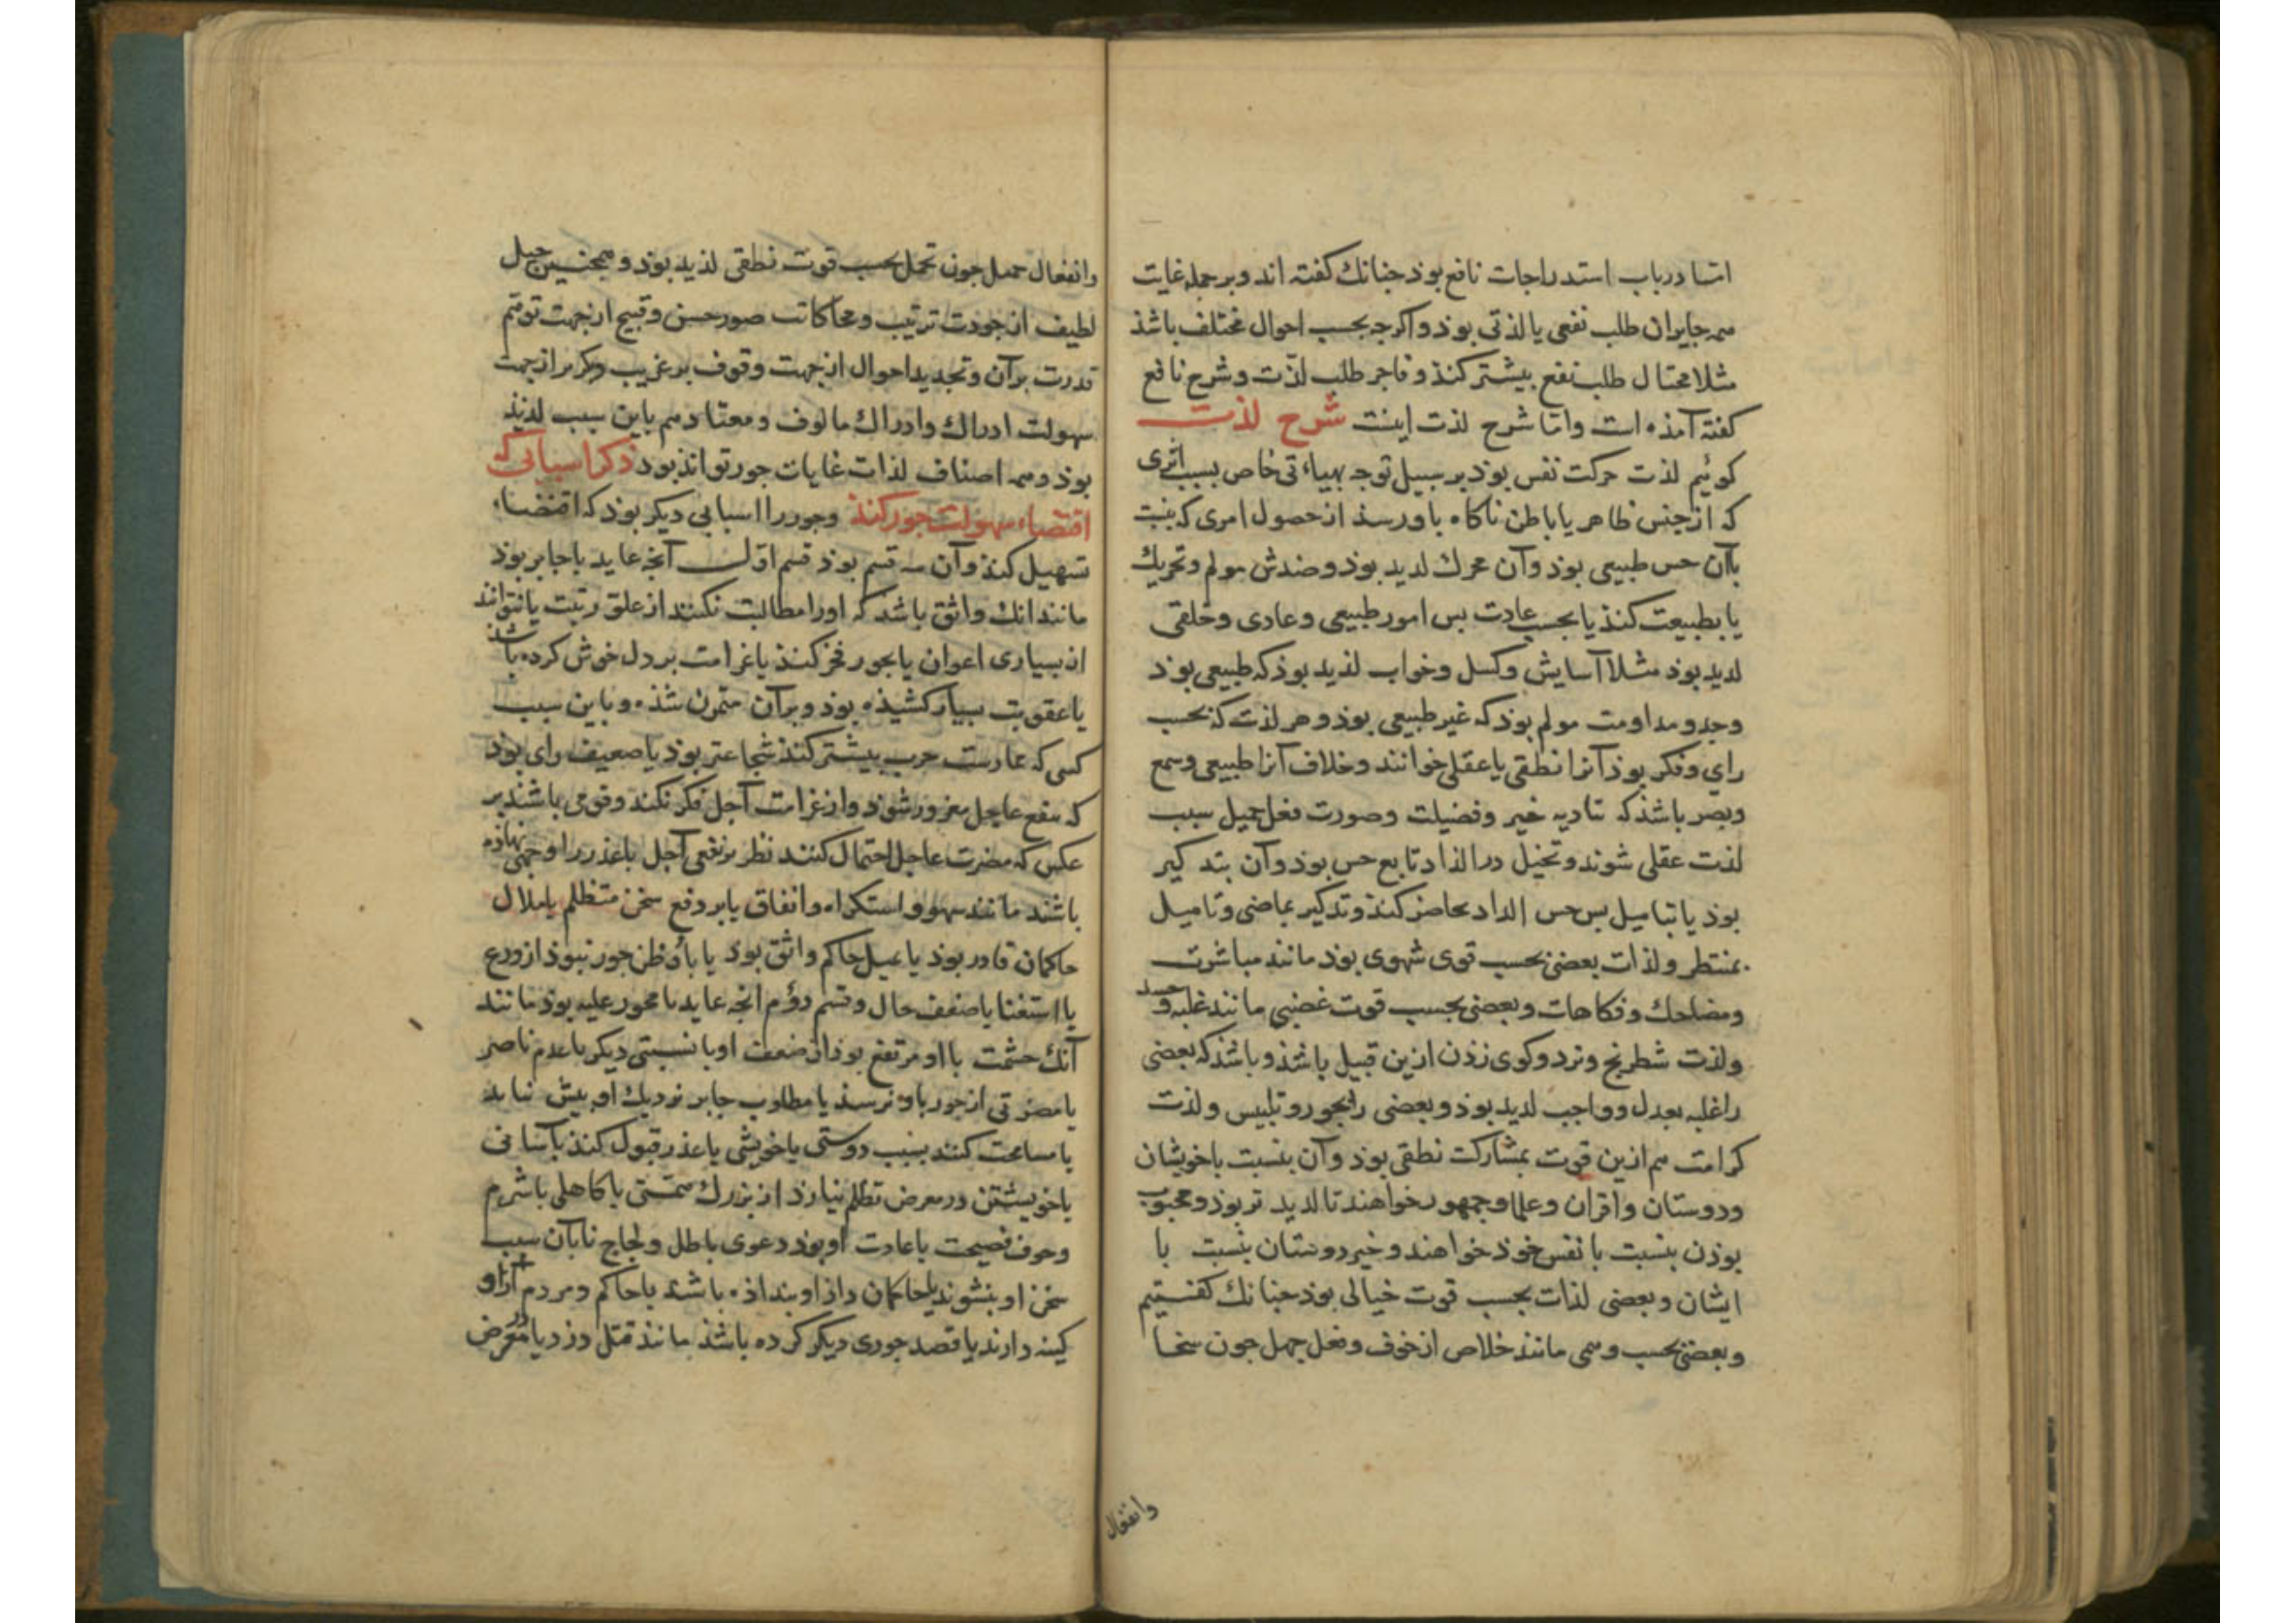 اما در باب استدراجات نافع بوذ جنانك كفته اند و بر جمله غایت
همه جایران طلب نفعی یا لذتی بوذ و اكرجه بحسب احوال مختلف باشذ
مثلا محتال طلب نفع بیشتر كنذ و فاجر طلب لذت و شرح نافع
كفته آمذه است و اما شرح لذت اینست شرح لذت
كوئیم لذت حركت نفس بوذ بر سبیل توجه بهیاءتی خاص بسبب اثری
كه از جنس ظاهر یا باطن ناكاه باو رسذ از حصول امری كه بنسبت
باآن حس طبیعی بوذ وآن محرك لدید بوذ و ضدش مولم و تحریك
یا بطبیعت كنذ یا بحسب عادت بس امور طبیعی و عادی و خلقی
لدید بوذ مثلا آسایش و كسل و خواب لذید بوذ كه طبیعی بوذ
وجد و مداومت مولم بوذ كه غیر طبیعی بوذ و هر لذت كه بحسب
رای و فكر بوذ آنرا نطقی یا عقلی خوانند و خلاف آنرا طبیعی و سمع
و بصر باشذ كه تادیه خیر و فضیلت و صورت فعل جمیل سبب
لذت عقلی شوند و تخیل در الذاد تابع حس بوذ وآن بتدكیر
بوذ یا بتامیل بس حس الداد بحاضر كنذ و تدكیر بماضی و تامیل
بمنتظر و لذات بعضی بحسب قوی شهوی بوذ مانند مباشرت
و مضاحك و فكاهات و بعضی بحسب قوت غضبی مانند غلبه و حسد
و لذت شطرنج و نرد و كوی زذن ازین قبیل باشذ و باشذ كه بعضی
را غلبه بعدل و واجب لدید بوذ و بعضی را بجور و تلبیس و لذت
كرامت هم ازین قوت بمشاركت نطقی بوذ وآن بنسبت با خویشان
و دوستان و اقران و علما و جمهور خواهند تا لدید تر بوذ و محبوب
بوذن بنسبت با نفس خوذ خواهند و خیر دوستان بنسبت با
ایشان و بعضی لذات بحسب قوت خیالی بوذ جنانك كفتیم
و بعضی بحسب وهمی مانند خلاص از خوف و فعل جمیل جون سخا
وانفعال
وانفعال جمیل جون تحمل بحسب قوت نطقی لذید بوذ و همجنین حیل
لطیف از جودت ترتیب و محاكات صور حسن و قبیح از جهت توهم
قدرت برآن و تجدید احوال از جهت وقوف بر غریب و مكرر از جهت
سهولت ادراك و ادراك مالوف و معتاد هم باین سبب لدیذ
بوذ و همه اصناف لذات غایات جور توانذ بود ذكر اسبابی كه
اقتضاء سهولت جور كنذ و جور را اسبابی دیكر بوذ كه اقتضاء
تسهیل كنذ وآن سه قسم بوذ قسم اول آنجه عاید با جابر بوذ
مانند انك واثق باشد كه او را مطالبت نكنند از علو رتبت یا نتوانند
از بسیاری اعوان یا بجور فخر كنذ یا غرامت بر دل خوش كرده باشذ
یا عقوبت بسیار كشیذه بوذ و برآن متمرن شذه و باین سبب
كسی كه ممارست حرب بیشتر كنذ شجاعتر بوذ یا ضعیف رای بوذ
كه بنفع عاجل مغرور شوذ و از غرامت آجل فكر نكند و قومی باشند بر
عكس كه مضرت عاجل احتمال كنند نظر بر نفعی آجل یا عذر را وجهی نهاذه
باشند مانند سهو و استكراه و اتفاق یا بر دفع سخن متظلم یا ملال
حاكمان قادر بوذ یا بمیل حاكم واثق بود یا باو ظن جور نبوذ از ورع
یا استغنا یا ضعف حال و قسم دوم انجه عاید با مجور علیه بوذ مانند
آنك حشمت با او مرتفع بوذ از ضعف او یا نسبتی دیكر یا عدم ناصر
یا مضرتی از جور باو نرسذ یا مطلوب جابر نزدیك او بیش نیاید
یا مسامحت كنند بسبب دوستی یا خویشی یا عذر قبول كنذ بآسانی
یا خویشتن در معرض تظلم نیارذ از بزرك همتی یا كاهلی یا شرم
و خوف فضیحت یا عادت او بوذ دعوی باطل و لجاج تا بآن سبب
سخن او نشنوند یا حاكمان داذ او بنداذه باشند یا حاكم و مردم آزاو
كینه دارند یا قصد جوری دیكر كرده باشذ مانند قتل دزد یا در معرض